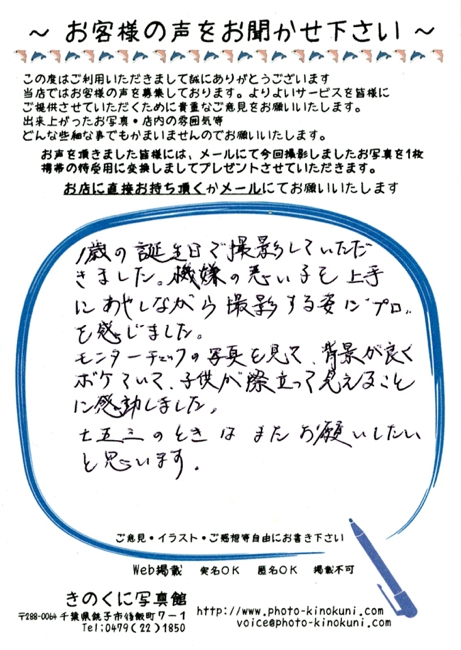 ～ お客様の声をお聞かせ下さい ～
この度はご利用いただきまして誠にありがとうございます
当店ではお客様の声を募集しております。よりよいサービスを皆様に
ご提供させていただくために貴重なご意見をお願いいたします。
出来上がったお写真・店内の雰囲気等
どんな些細な事でもかまいませんのでお願いいたします。
お声を頂きました皆様には、メールにて今回撮影しましたお写真を1枚
携帯の待受用に変換しましてプレゼントさせていただきます。
お店に直接お持ち頂くかメールにてお願いいたします
1歳の誕生日で撮影していただ
きました。機嫌の悪い子も上手
にあやしながら撮影する姿に"プロ"
を感じました。
モニターチェックの写真を見て、背景が良く
ボケていて、子供が際立って見えること
に感動しました。
七五三のときはまたお願いしたい
と思います。
ご意見・イラスト・ご感想等自由にお書き下さい
Web掲載 実名OK 匿名OK 掲載不可
きのくに写真館
〒288-0064 千葉県銚子市 飯町7－1
Tel:0479(22)1850
http://www.photo-kinokuni.com/
voice@photo-kinokuni.com